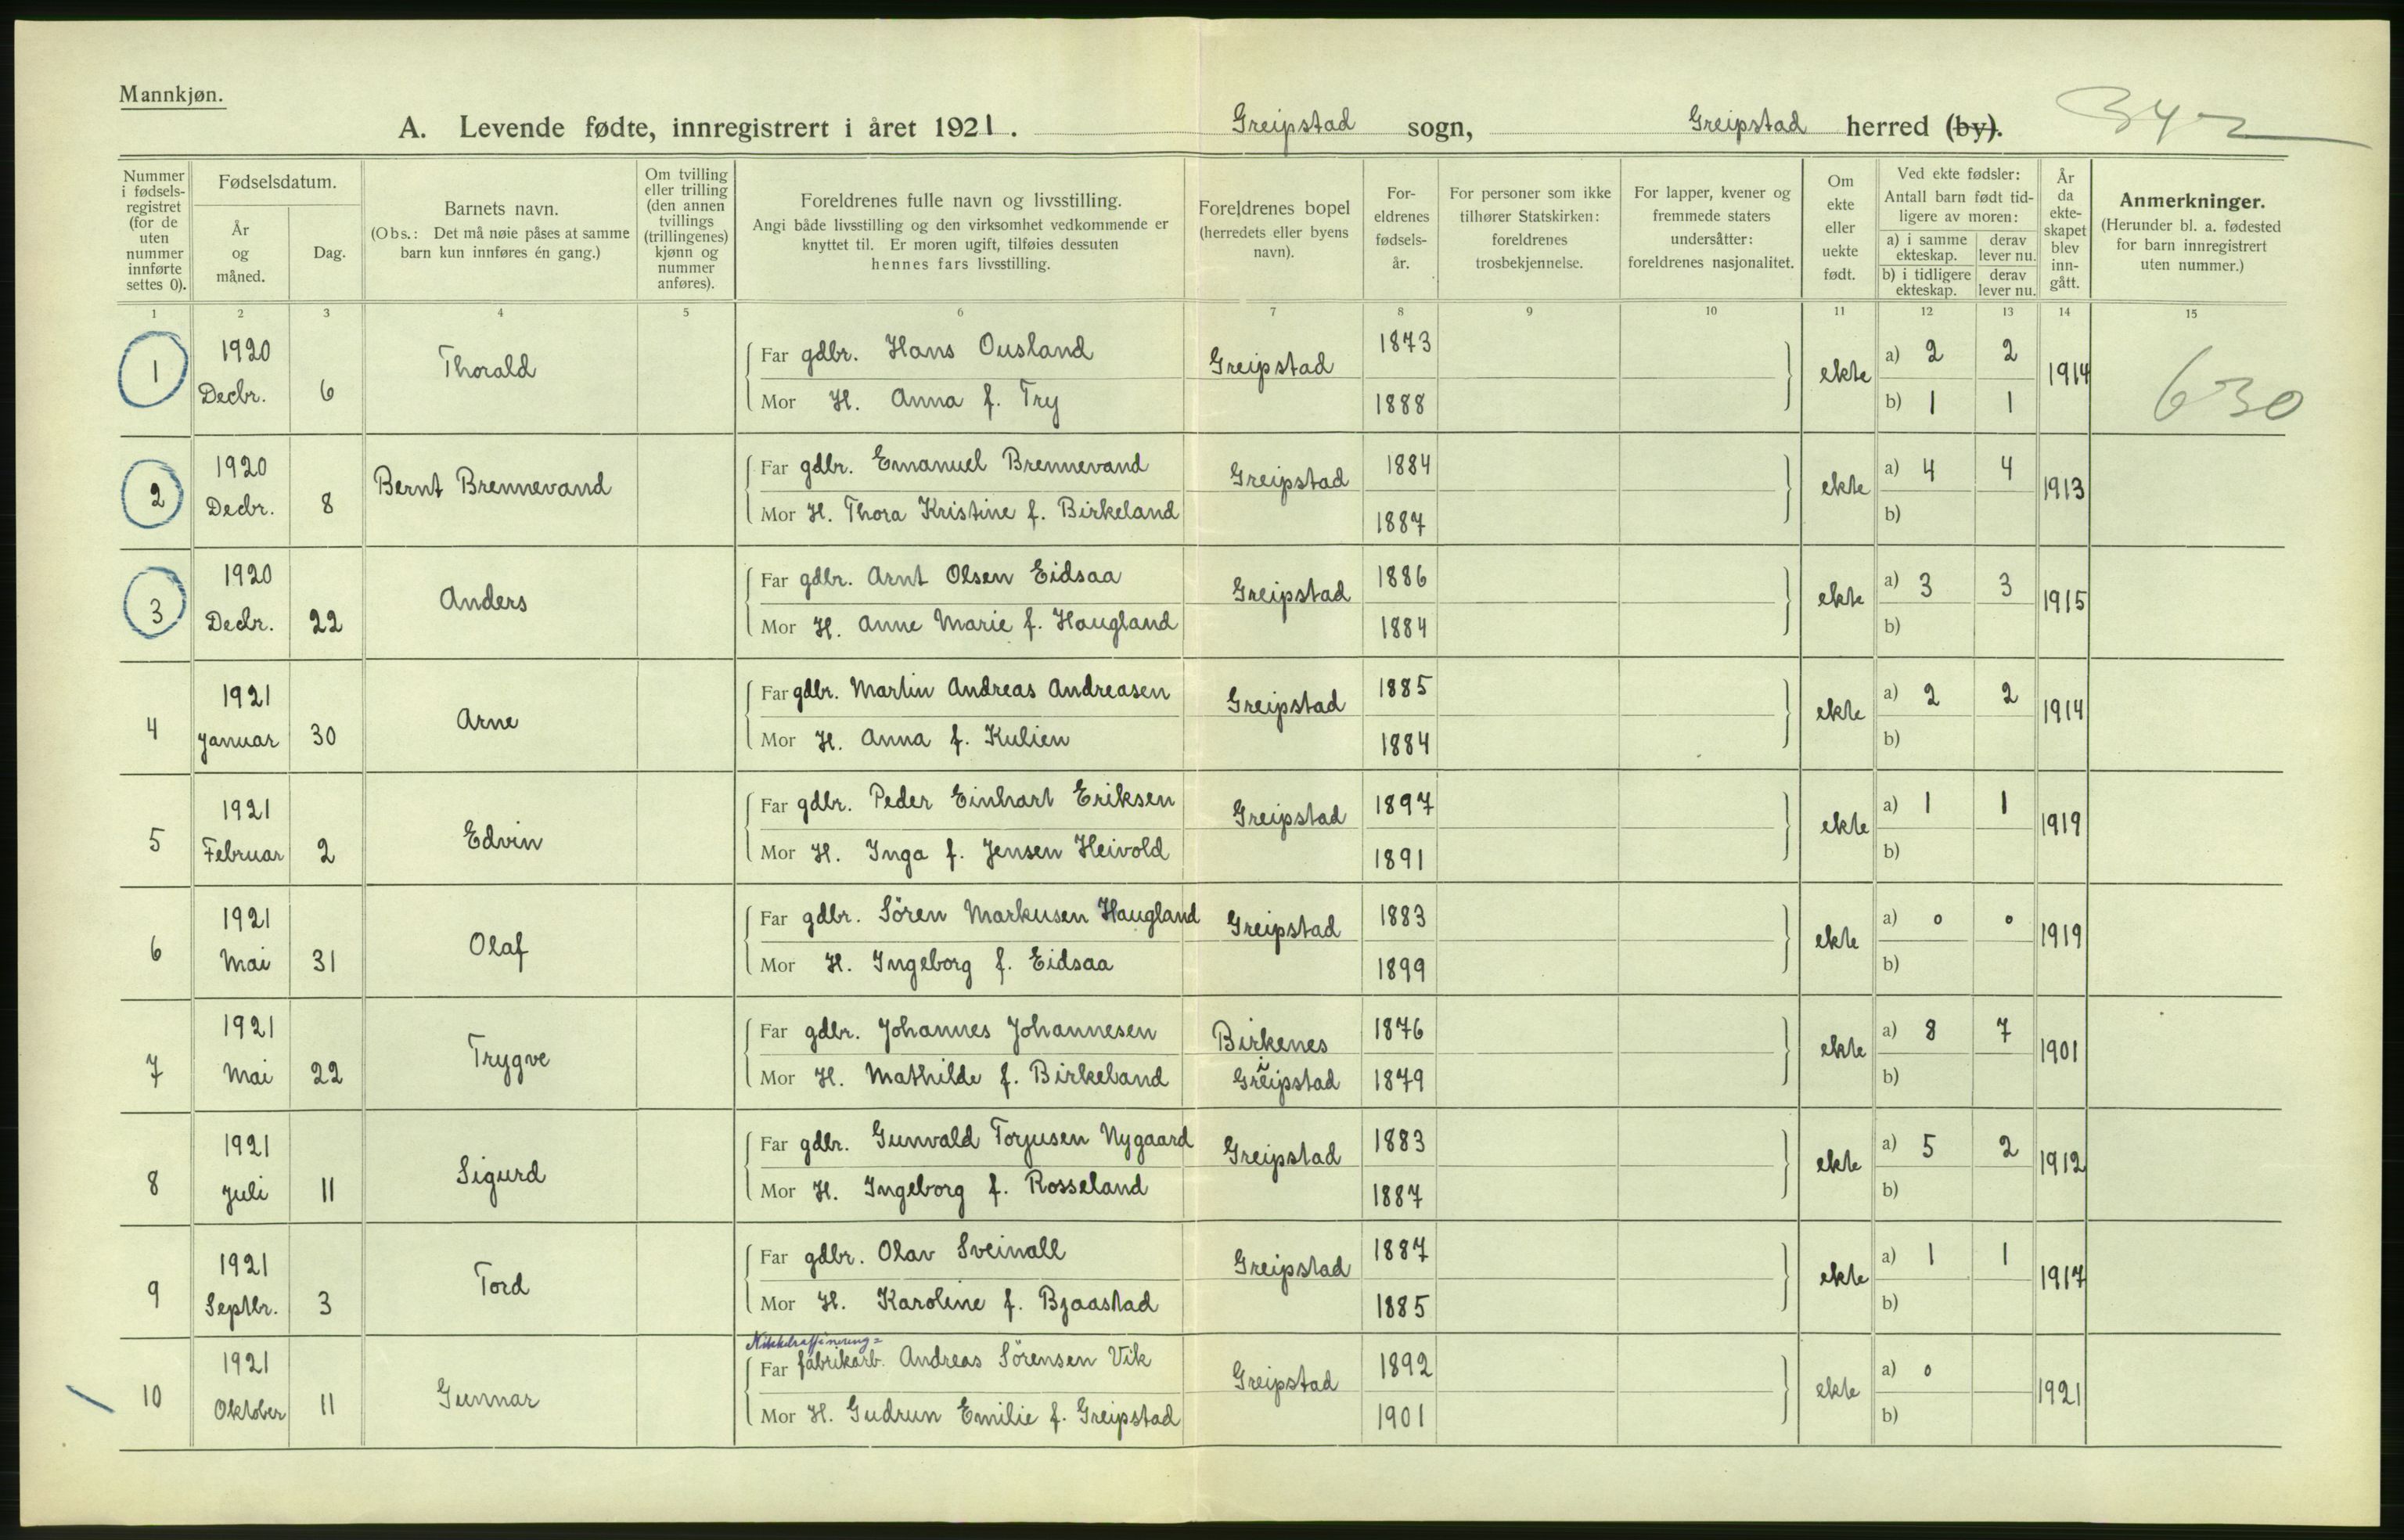 Mannkjøn.
A. Levende fødte, innregistrert i året 1921. Greipstad sogn, Greipstad herred (by).
Nummer i fødsels-registret (for de uten nummer innførte settes 0).
Fødselsdatum.
År og måned.
Dag.
Barnets navn.
(Obs.: Det må nøie påses at samme barn kun innføres én gang.)
Om tvilling eller trilling (den annen tvillings (trillingenes) kjønn og nummer anføres).
Foreldrenes fulle navn og livsstilling.
Angi både livsstilling og den virksomhet vedkommende er knyttet til. Er moren ugift, tilføies dessuten hennes fars livsstilling.
Foreldrenes bopel (herredets eller byens navn).
For-eldrenes fødsels-år.
For personer som ikke tilhører Statskirken: foreldrenes trosbekjennelse.
For lapper, kvener og fremmede staters undersåtter: foreldrenes nasjonalitet.
Om ekte eller uekte født.
Ved ekte fødsler: Antall barn født tid-ligere av moren:
a) i samme ekteskap. derav lever nu.
b) i tidligere ekteskap. derav lever nu.
År da ekte-skapet blev inn-gått.
Anmerkninger.
(Herunder bl. a. fødested for barn innregistrert uten nummer.)
1 2 3 4 5 6 7 8 9 10 11 12 13 14 15
1 1920 Decbr. 6 Thorald Far gdbr. Hans Ousland Greipstad 1873 ekte a) 2 2 1914 630
Mor H. Anna f. Try 1888 b) 1 1
2 1920 Decbr. 8 Bernt Brennevand Far gdbr. Emanuel Brennevand Greipstad 1884 ekte a) 4 4 1913
Mor H. Thora Kristine f. Birkeland 1887 b)
3 1920 Decbr. 22 Anders Far gdbr. Arnt Olsen Eidsaa Greipstad 1886 ekte a) 3 3 1915
Mor H. Anne Marie f. Haugland 1884 b)
4 1921 Januar 30 Arne Far gdbr. Martin Andreas Andreasen Greipstad 1885 ekte a) 2 2 1914
Mor H. Anna f. Kulien 1884 b)
5 1921 Februar 2 Edvin Far gdbr. Peder Einhart Eriksen Greipstad 1897 ekte a) 1 1 1919
Mor H. Inga f. Jensen Heivold 1891 b)
6 1921 Mai 31 Olaf Far gdbr. Sören Markusen Haugland Greipstad 1883 ekte a) 0 0 1919
Mor H. Ingeborg f. Eidsaa 1899 b)
7 1921 Mai 22 Trygve Far gdbr. Johannes Johannesen Birkenes i Greipstad 1876 ekte a) 8 7 1901
Mor H. Mathilde f. Birkeland 1879 b)
8 1921 Juli 11 Sigurd Far gdbr. Gunvald Torjusen Nygaard Greipstad 1883 ekte a) 5 2 1912
Mor H. Ingeborg f. Rosseland 1887 b)
9 1921 Septbr. 3 Tord Far gdbr. Olav Sveinall Greipstad 1887 ekte a) 1 1 1917
Mor H. Karoline f. Bjaastad 1885 b)
Nikkelraffinering=
10 1921 Oktober 11 Gunnar Far fabrikarb. Andreas Sörensen Vik Greipstad 1892 ekte a) 0 1921
Mor H. Gudrun Emilie f. Greipstad 1901 b)